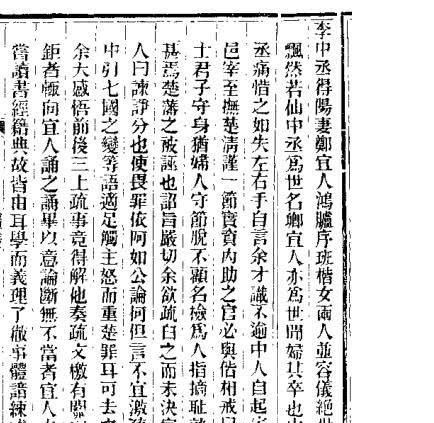 李中丞得陽妻鄭宜人鴻臚序班楷女兩人並容儀絕世
飄然若仙中丞爲世名卿宜人亦爲世聞婦其卒也中
丞痛惜之如失左右手自言余才識不逾中人自起家
邑宰至撫楚淸謹一節實資內助之官必與偕相戒曰
士君子守身猶婦人守節脫不顧名檢爲人指摘耻孰
甚焉楚藩之被誣也詔旨嚴切余欲疏白之而未決宜
人曰諫諍分也使畏罪依阿如公論何但言不宜激發
中引七國之變等語適足觸主怒而重楚罪耳可去之
余大感悟前後三上疏事竟得解他奏疏文檄有關
鉅者輒向宜人誦之誦畢以意論斷無不當者宜人
嘗讀書經籍典故皆由耳學而義理了徹事體諳練